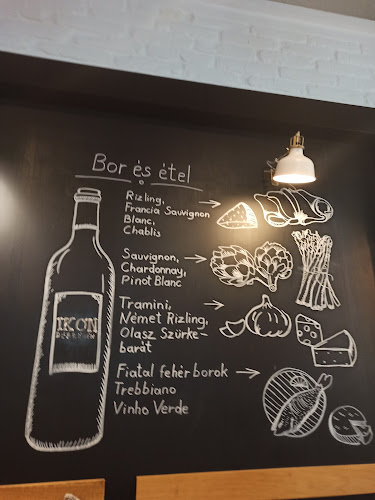 Bor és étel
Rizling,
Francia Sauvignon
Blanc,
Chablis
Sauvignon,
Chardonnay,
Pinot Blanc
Tramini,
Német Rizling,
Olasz Szürke-
barát
Fiatal fehér borok
Trebbiano
Vinho Verde
IKON